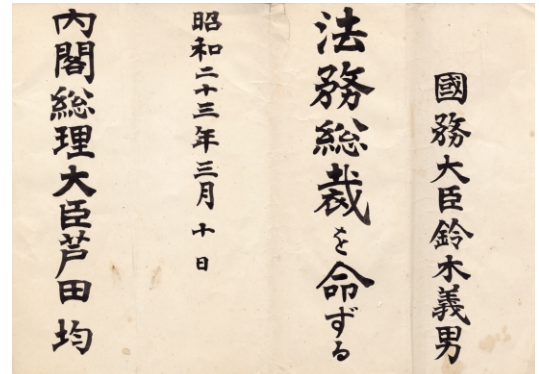 國務大臣鈴木義男
法務総裁を命ずる
昭和二十三年三月十日
内閣総理大臣芦田均